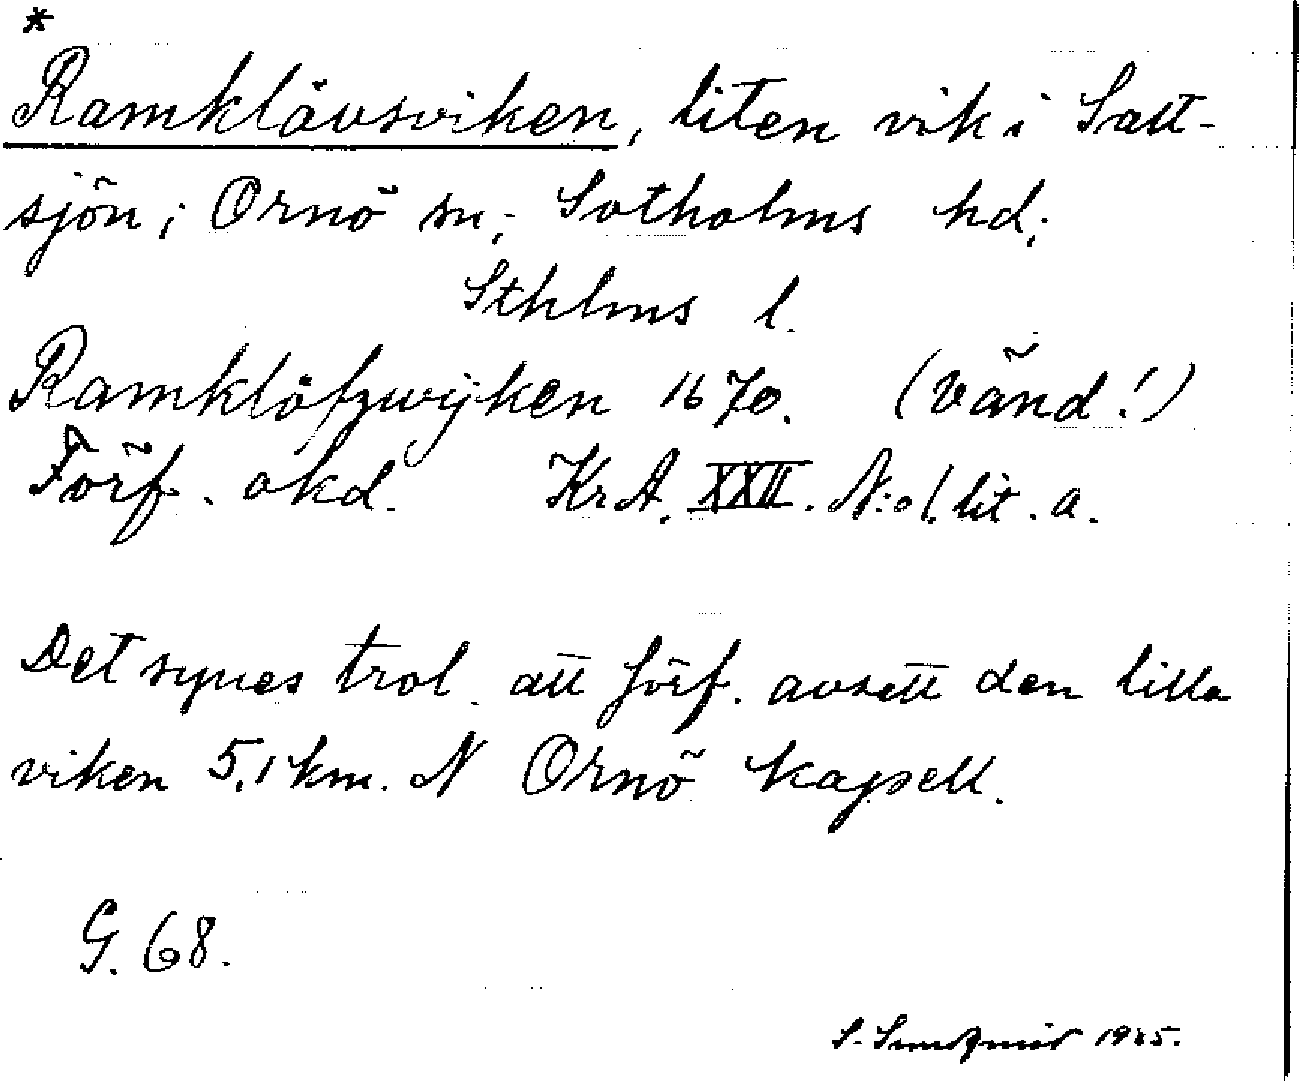 *
Ramklävsviken, liten vik i Salt-
sjön; Ornö sn; Sotholms hd;
Sthlms l.
Ramklöfzwijken 1670. (Vänd!)
Förf. okd. KrA. XXII. N:o 1. lit. a.
Det synes trol. att förf. avsett den lilla
viken 5,1 km. N Ornö kapell.
G. 68.
S. 19